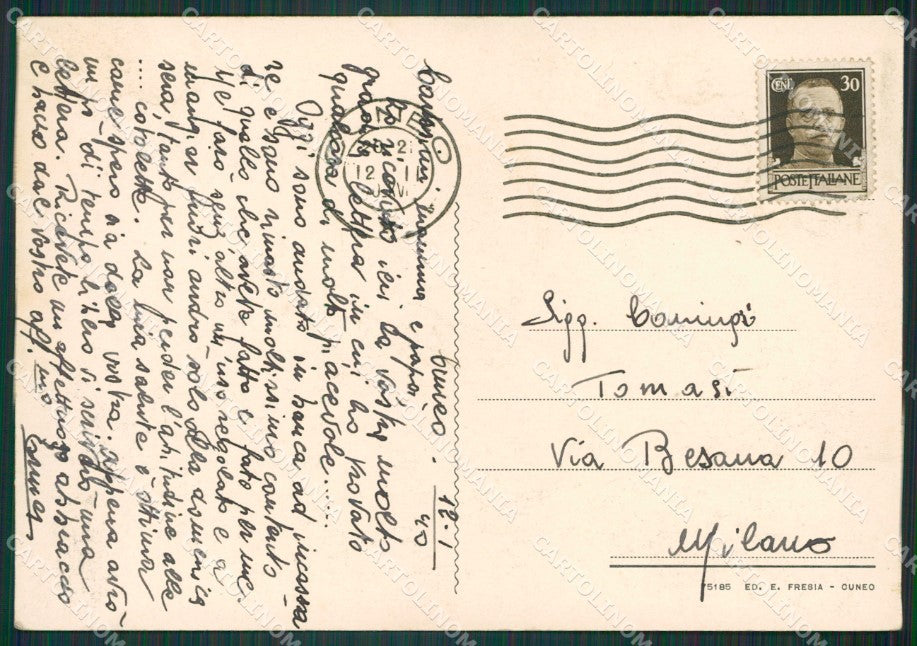 Cuneo - 12.1
40
Carissimi mamma e papà,
ho ricevuto ieri la vostra molto
gradita lettera in cui ho trovato
qualcosa di molto piacevole......
Oggi sono andato in banca ad incassa-
re e sono rimasto moltissimo contento
di quello che avete fatto e fate per me.
Ne farò senz'altro un uso regolato e a
mangiar fuori andrò solo alla domenica
sera, tanto per non perder l'abitudine alle
... cotolette. La mia salute è ottima
come spero sia della vostra. Appena avrò
un po' di tempo libero vi scriverò una
lettera. Ricevete un affettuoso abbraccio
e bacio dal vostro aff. mo
CUNEO
12
CENT. 30
POSTE ITALIANE
Sigg. Coniugi
Tomasi
Via Besana 10
Milano
75185 ED. E. FRESIA - CUNEO
CARTOLINOMANIA